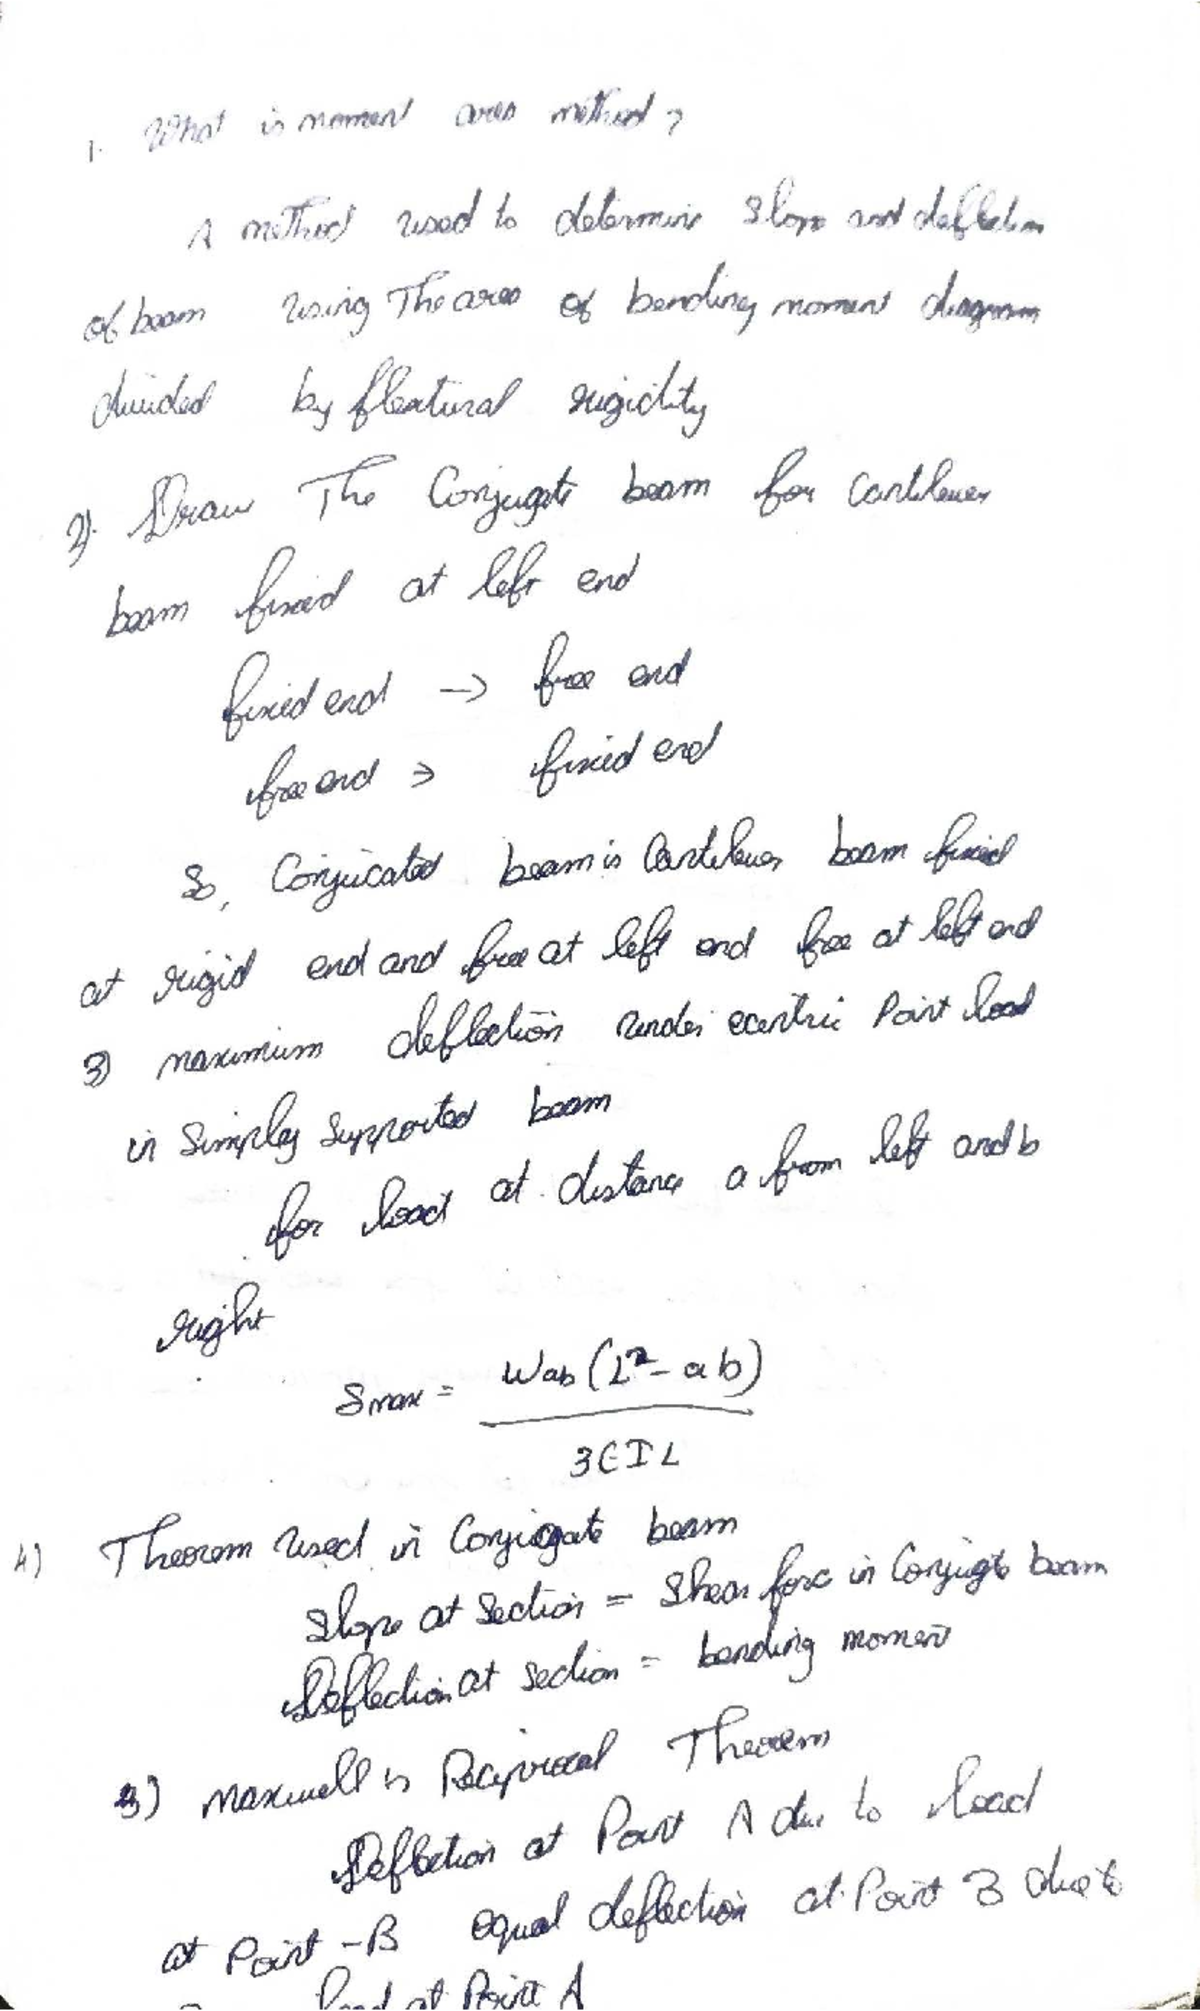 1. What is moment area method?
A method used to determine slope and deflection
of beam using The area of bending moment diagram
divided by flextural rigidity
2). Draw The Conjugate beam for cantilever
beam fixed at left end
fixed end -> free end
free end -> fixed end
So, Conjucated beam is Cantilever beam fixed
at rigid end and free at left end free at left end
3) maximum deflection under ecentric Point load
in Simply Supported beam
for load at distance a from left and b
right
δmax = Wab (L²-ab)
3EIL
4) Theorem used in Conjugate beam
Slope at Section = Shear force in Conjugate beam
Deflection at section = bending moment
Maxwell's Reciprocal Theorem
Deflection at Point A due to load
at Point -B equal deflection at Point B due to
load at Point A